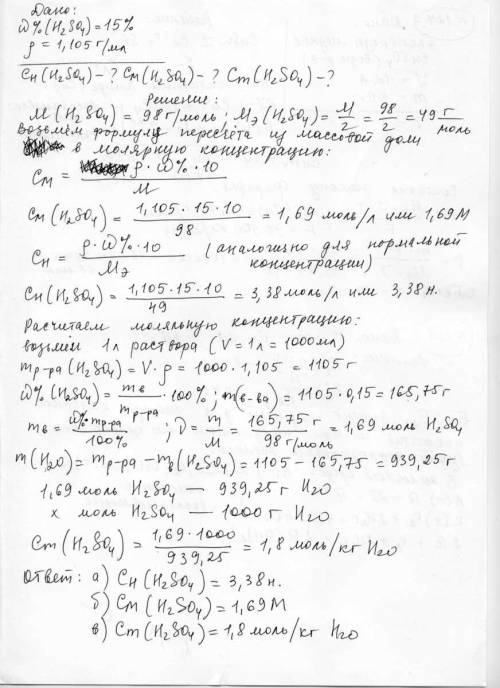 Дано:
ω%(H₂SO₄) = 15%
ρ = 1,105 г/мл
Cн(H₂SO₄) - ? Cм(H₂SO₄) - ? Cm(H₂SO₄) - ?
Решение:
M(H₂SO₄) = 98 г/моль; Mэ(H₂SO₄) = M/2 = 98/2 = 49 г/моль
возьмём формулу пересчёта из массовой доли
в молярную концентрацию:
Cм = ρ·ω%·10/M
Cм(H₂SO₄) = 1,105·15·10/98 = 1,69 моль/л или 1,69М
Cн = ρ·ω%·10/Mэ (аналогично для нормальной концентрации)
Cн(H₂SO₄) = 1,105·15·10/49 = 3,38 моль/л или 3,38 н.
Расчитаем моляльную концентрацию:
возьмём 1л раствора (V = 1л = 1000мл)
mр-ра(H₂SO₄) = V·ρ = 1000·1,105 = 1105г
ω%(H₂SO₄) = mв/mр-ра · 100%; m(в-ва) = 1105·0,15 = 165,75г
mв = ω%·mр-ра/100%; ν = m/M = 165,75 г/98 г/моль = 1,69 моль H₂SO₄
m(H₂O) = mр-ра - mв(H₂SO₄) = 1105 - 165,75 = 939,25г
1,69 моль H₂SO₄ — 939,25 г H₂O
x моль H₂SO₄ — 1000 г H₂O
Cm(H₂SO₄) = 1,69·1000/939,25 = 1,8 моль/кг H₂O
Ответ: а) Cн(H₂SO₄) = 3,38н.
б) Cм(H₂SO₄) = 1,69М
в) Cm(H₂SO₄) = 1,8 моль/кг H₂O